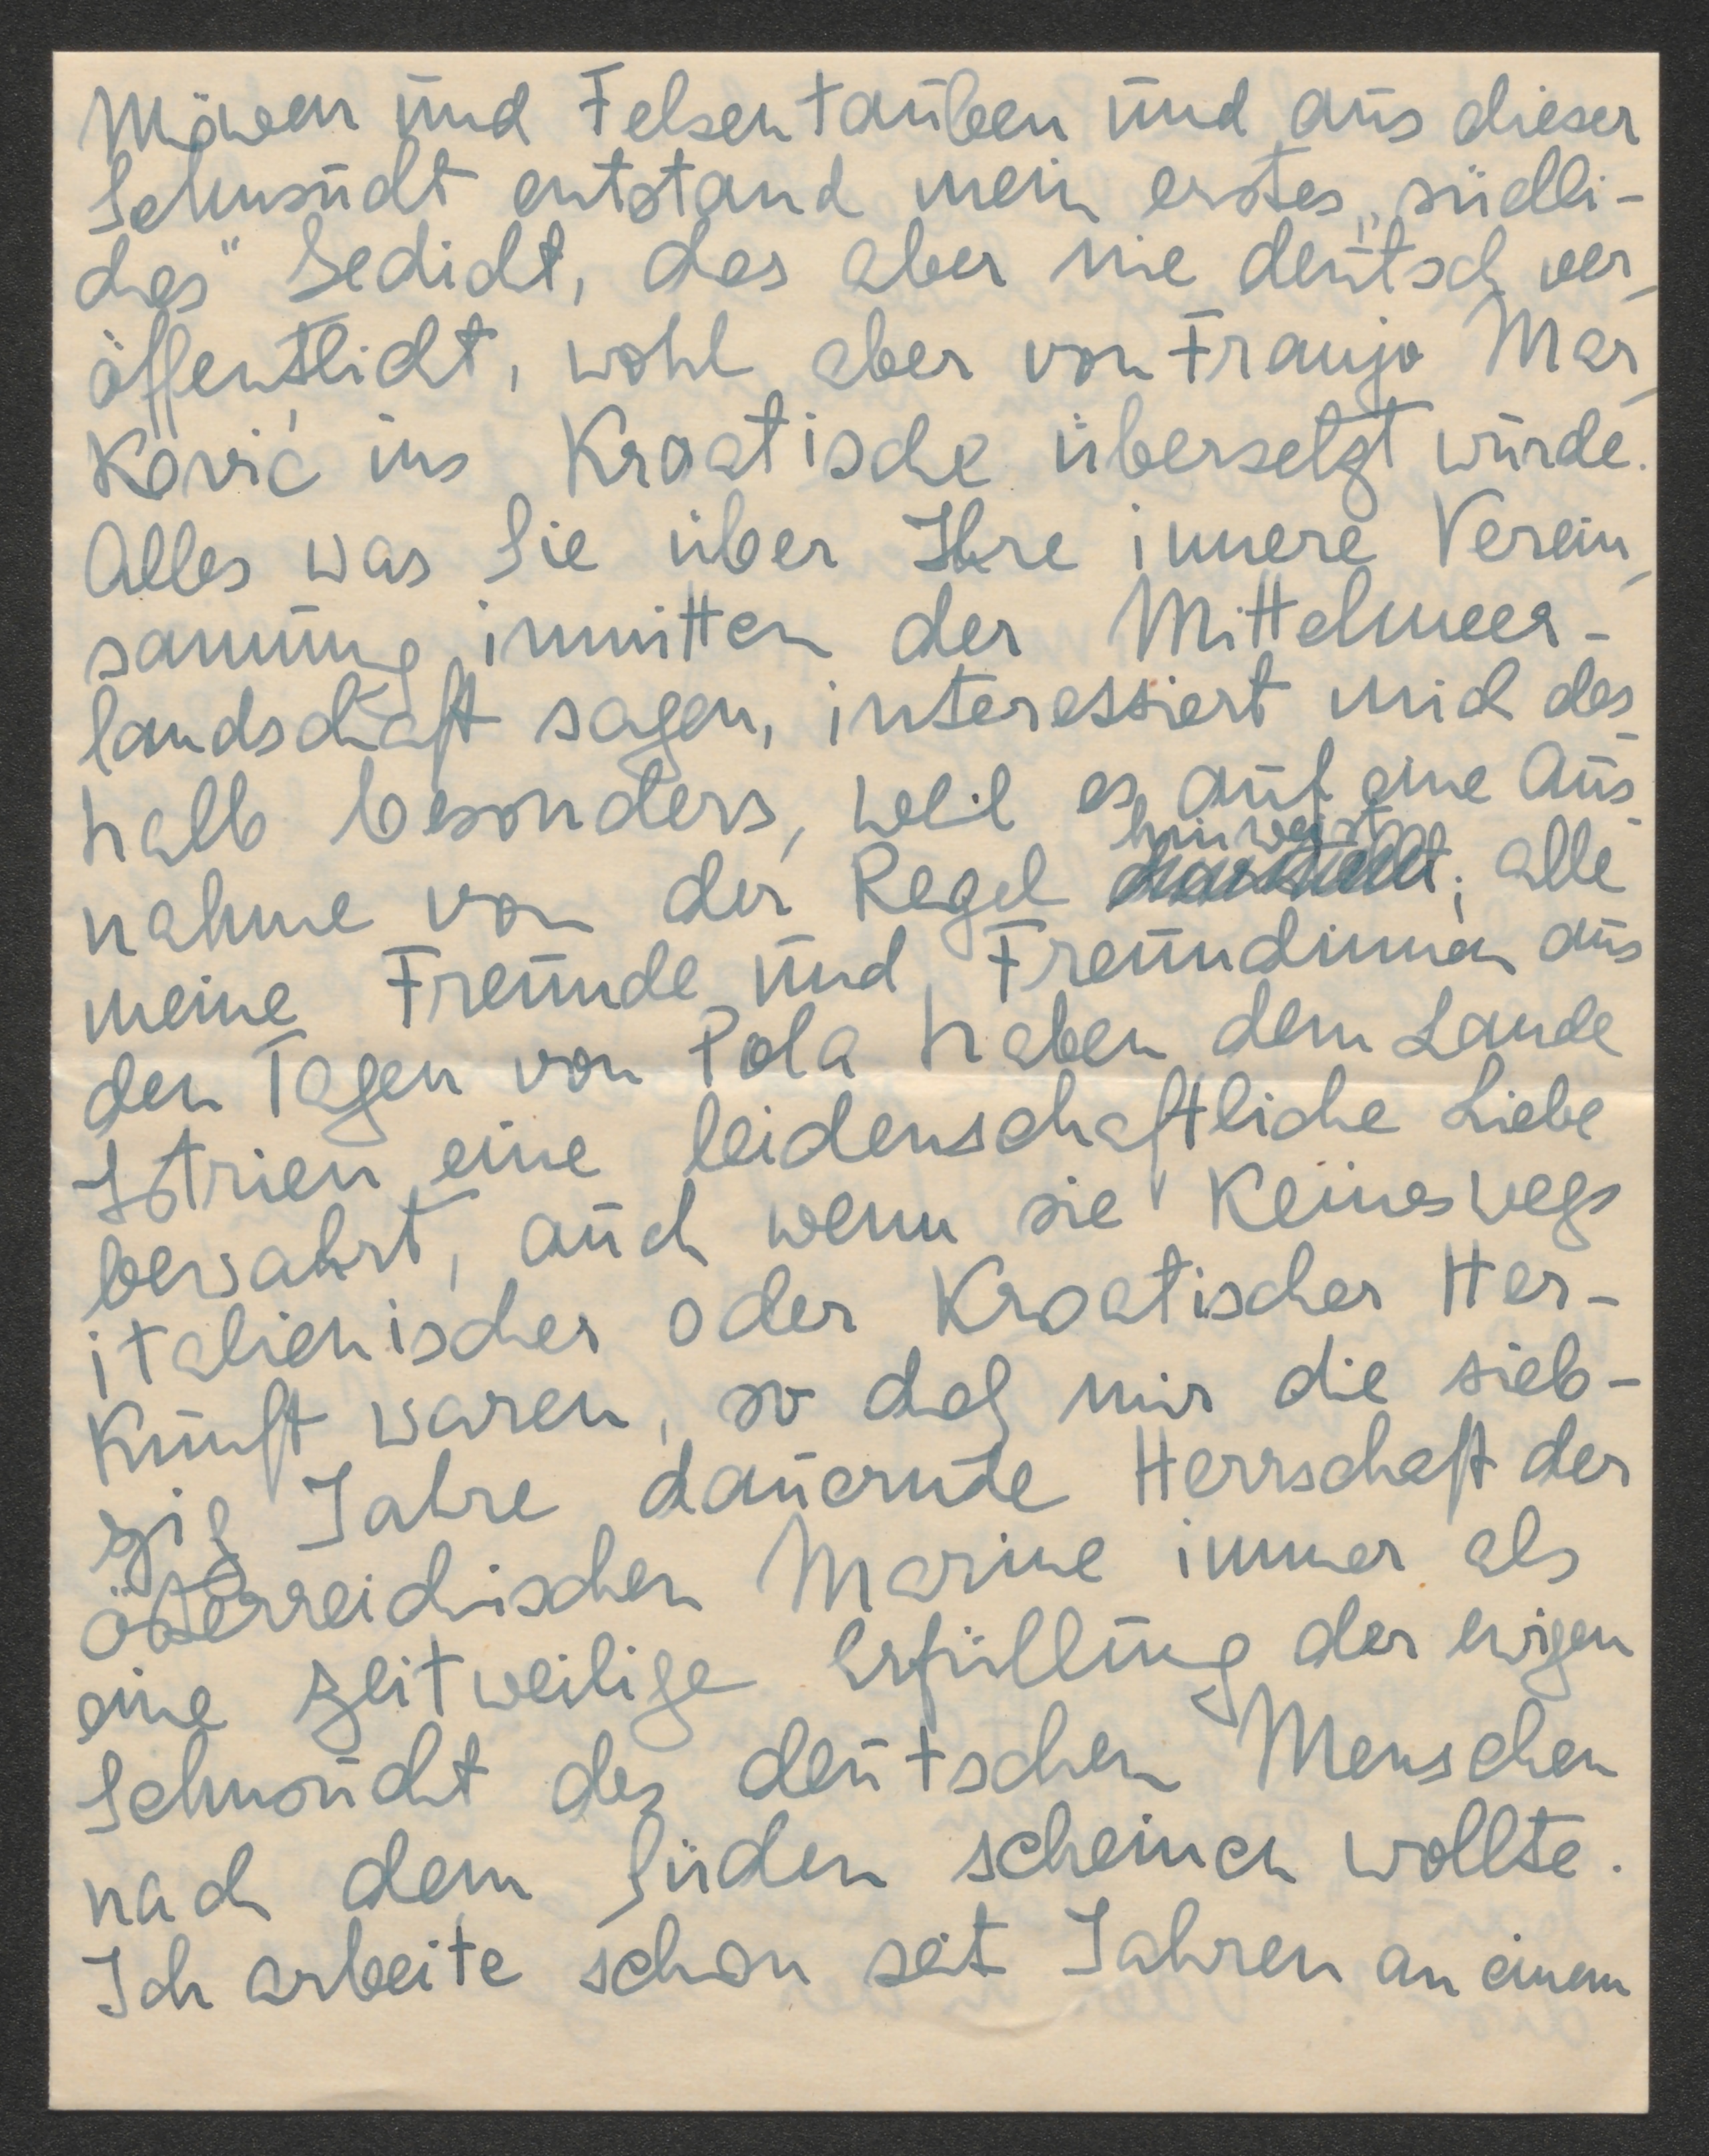 Möwen und Felsentauben und aus dieser
Sehnsucht entstand mein erstes „südli-
ches" Gedicht, das aber nie deutsch ver-
öffentlicht, wohl aber von Franjo Mar-
ković ins Kroatische übersetzt wurde.
Alles was Sie über Ihre innere Verein-
samung inmitten der Mittelmeer-
landschaft sagen, interessiert mich des-
halb besonders, weil es auf eine Aus-
nahme von der Regel hinweist; alle
meine Freunde und Freundinnen aus
den Tagen von Pola haben dem Lande
Istrien eine leidenschaftliche Liebe
bewahrt, auch wenn sie keineswegs
italienischer oder kroatischer Her-
kunft waren, so daß mir die sieb-
zig Jahre dauernde Herrschaft der
österreichischen Marine immer als
eine zeitweilige Erfüllung der ewigen
Sehnsucht des deutschen Menschen
nach dem Süden scheinen wollte.
Ich arbeite schon seit Jahren an einem